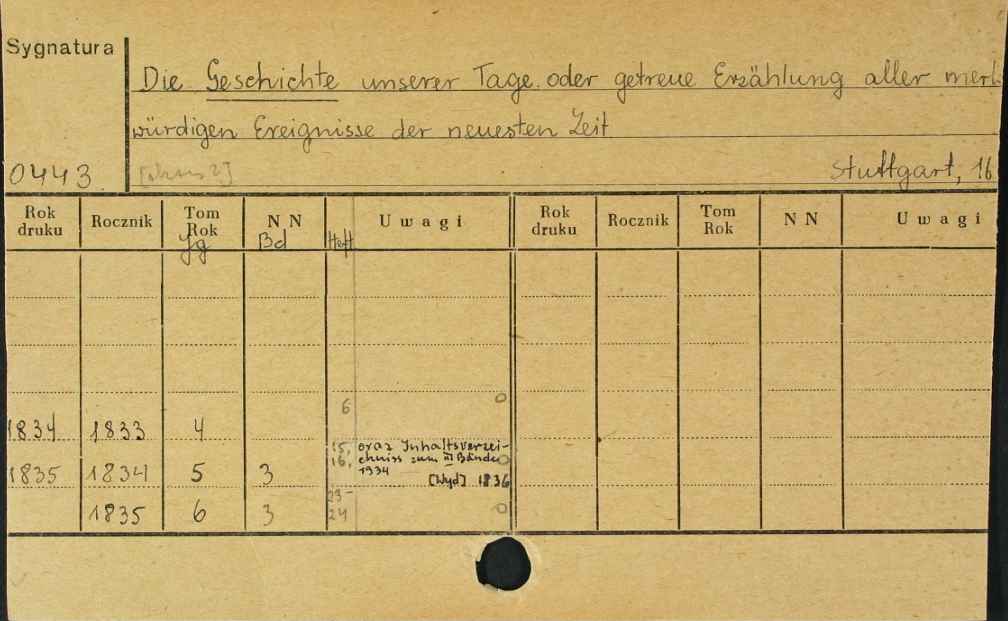 Sygnatura
Die Geschichte unserer Tage oder getreue Erzählung aller merk
würdigen Ereignisse der neuesten Zeit
0443
Stuttgart, 16
Rok druku Rocznik Tom Rok N N Uwagi Rok druku Rocznik Tom Rok N N Uwagi
Jg Bd Heft
6
1834 1833 4
15, oraz Inhaltsverzei-
16, chniss zum III Bande
1934
1835 1834 5 3 [Wyd] 1836
23-
1835 6 3 24